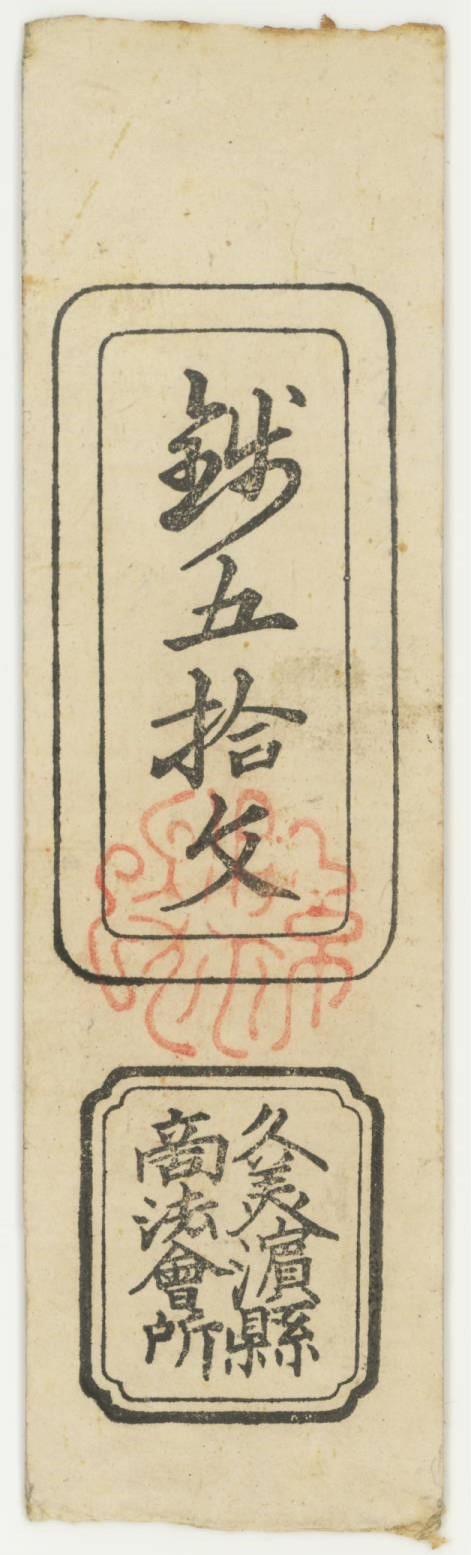 銭五拾文
久美濵縣
商法會所